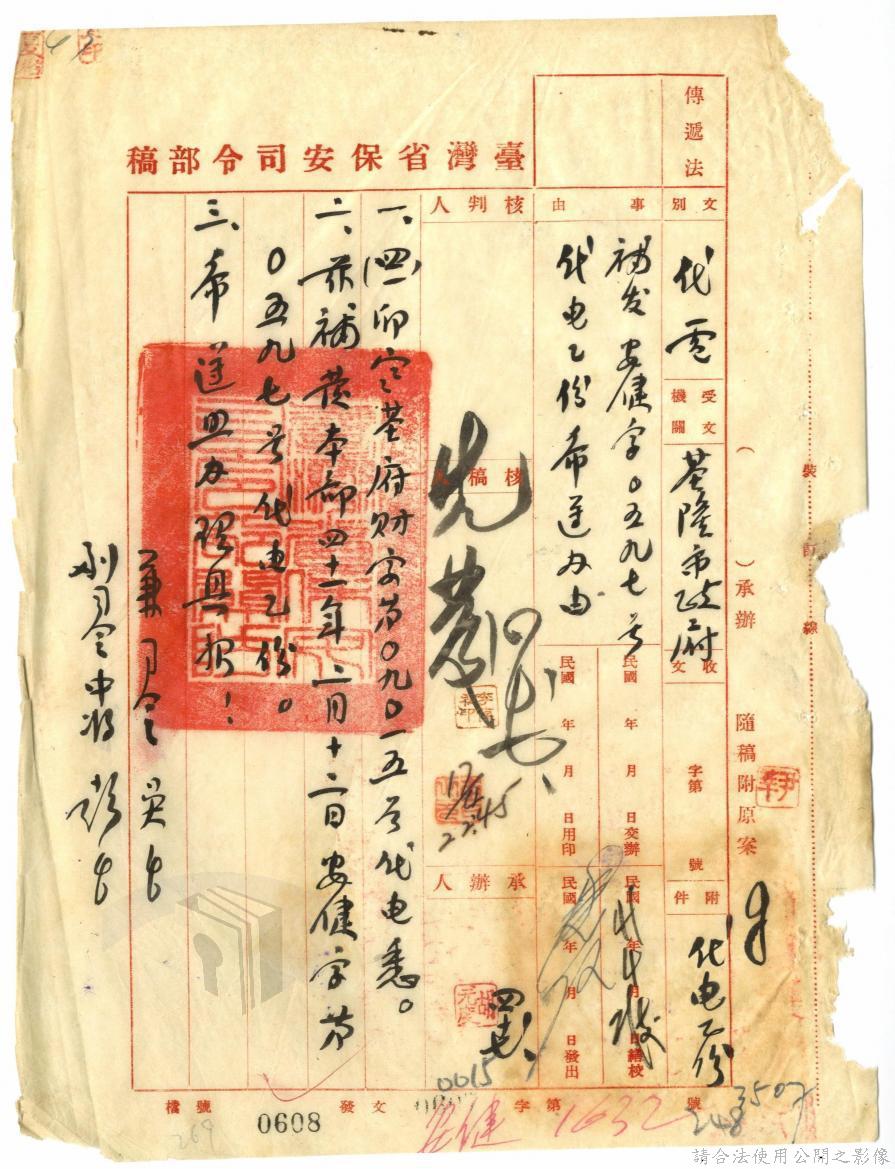 臺灣省保安司令部稿
傳遞法
文別
代電
受文機關
基隆市政府
收文
字第
號
附件
代電乙份
事由
補发安健字0五九七号
代電乙份希送办由
民國 年 月 日交辦
民國 年 月 日繕校
民國 年 月 日用印
民國 年 月 日發出
核判人
核稿人
承辦人
一、卯寒基府财安第0九0一五号代電悉。
二、茲補發本部四十一年二月十二日安健字第
0五九七号代電乙份。
三、希逕照办理具报！
兼司令吳
副司令中將彭
檔號
0608
發文
0015
安健
字第
1632
號
3507
248
269
17/4
22:45
(
)承辦
隨稿附原案
裝訂線
請合法使用公開之影像